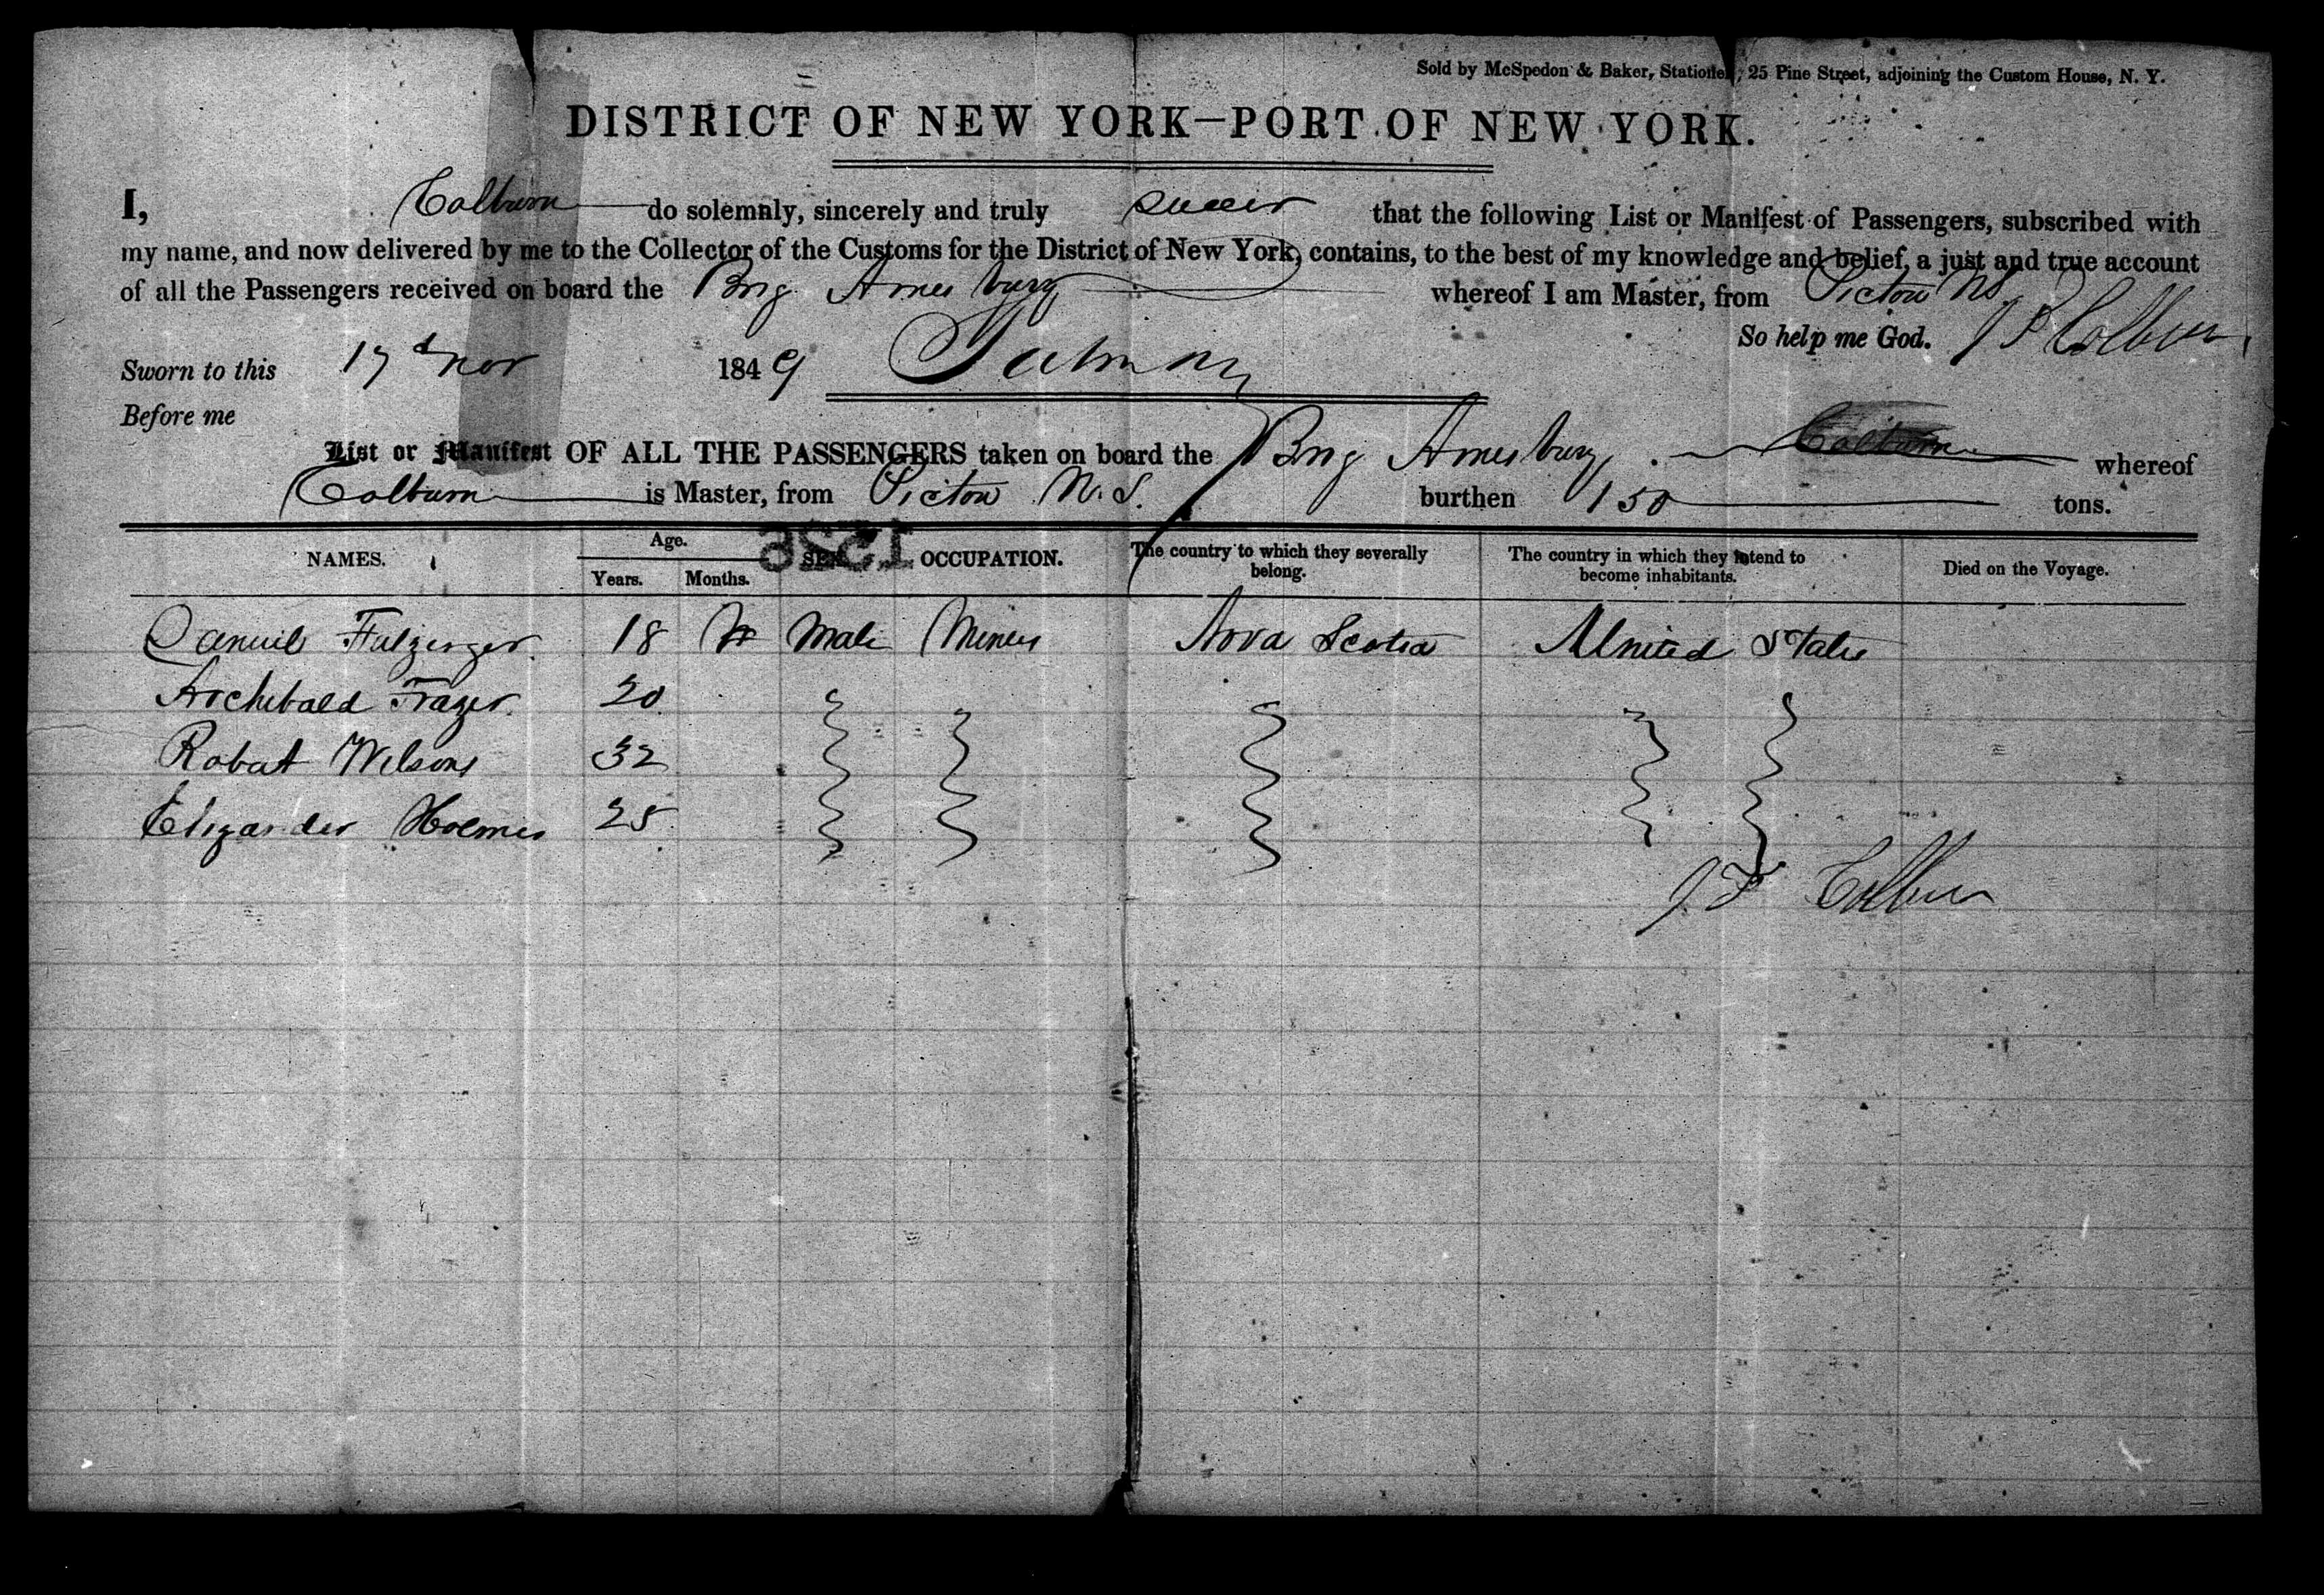 Sold by McSpedon & Baker, Stationers, 25 Pine Street, adjoining the Custom House, N. Y.
DISTRICT OF NEW YORK—PORT OF NEW YORK.
I, Colburn do solemnly, sincerely and truly swear that the following List or Manifest of Passengers, subscribed with
my name, and now delivered by me to the Collector of the Customs for the District of New York, contains, to the best of my knowledge and belief, a just and true account
of all the Passengers received on board the Brig Amesbury whereof I am Master, from Pictou NS
So help me God. J P Colburn
Sworn to this 17 Nov 1849
Before me
List or Manifest OF ALL THE PASSENGERS taken on board the Brig Amesbury Colburn whereof
Colburn is Master, from Pictou N.S. burthen 150 tons.
1525
NAMES. Age. SEX. OCCUPATION. The country to which they severally belong. The country in which they intend to become inhabitants. Died on the Voyage.
Years. Months.
18 Male Miners Nova Scotia United States
Archibald Frazer 20
Robart Wilsons 32
Holmes 25
Colburn